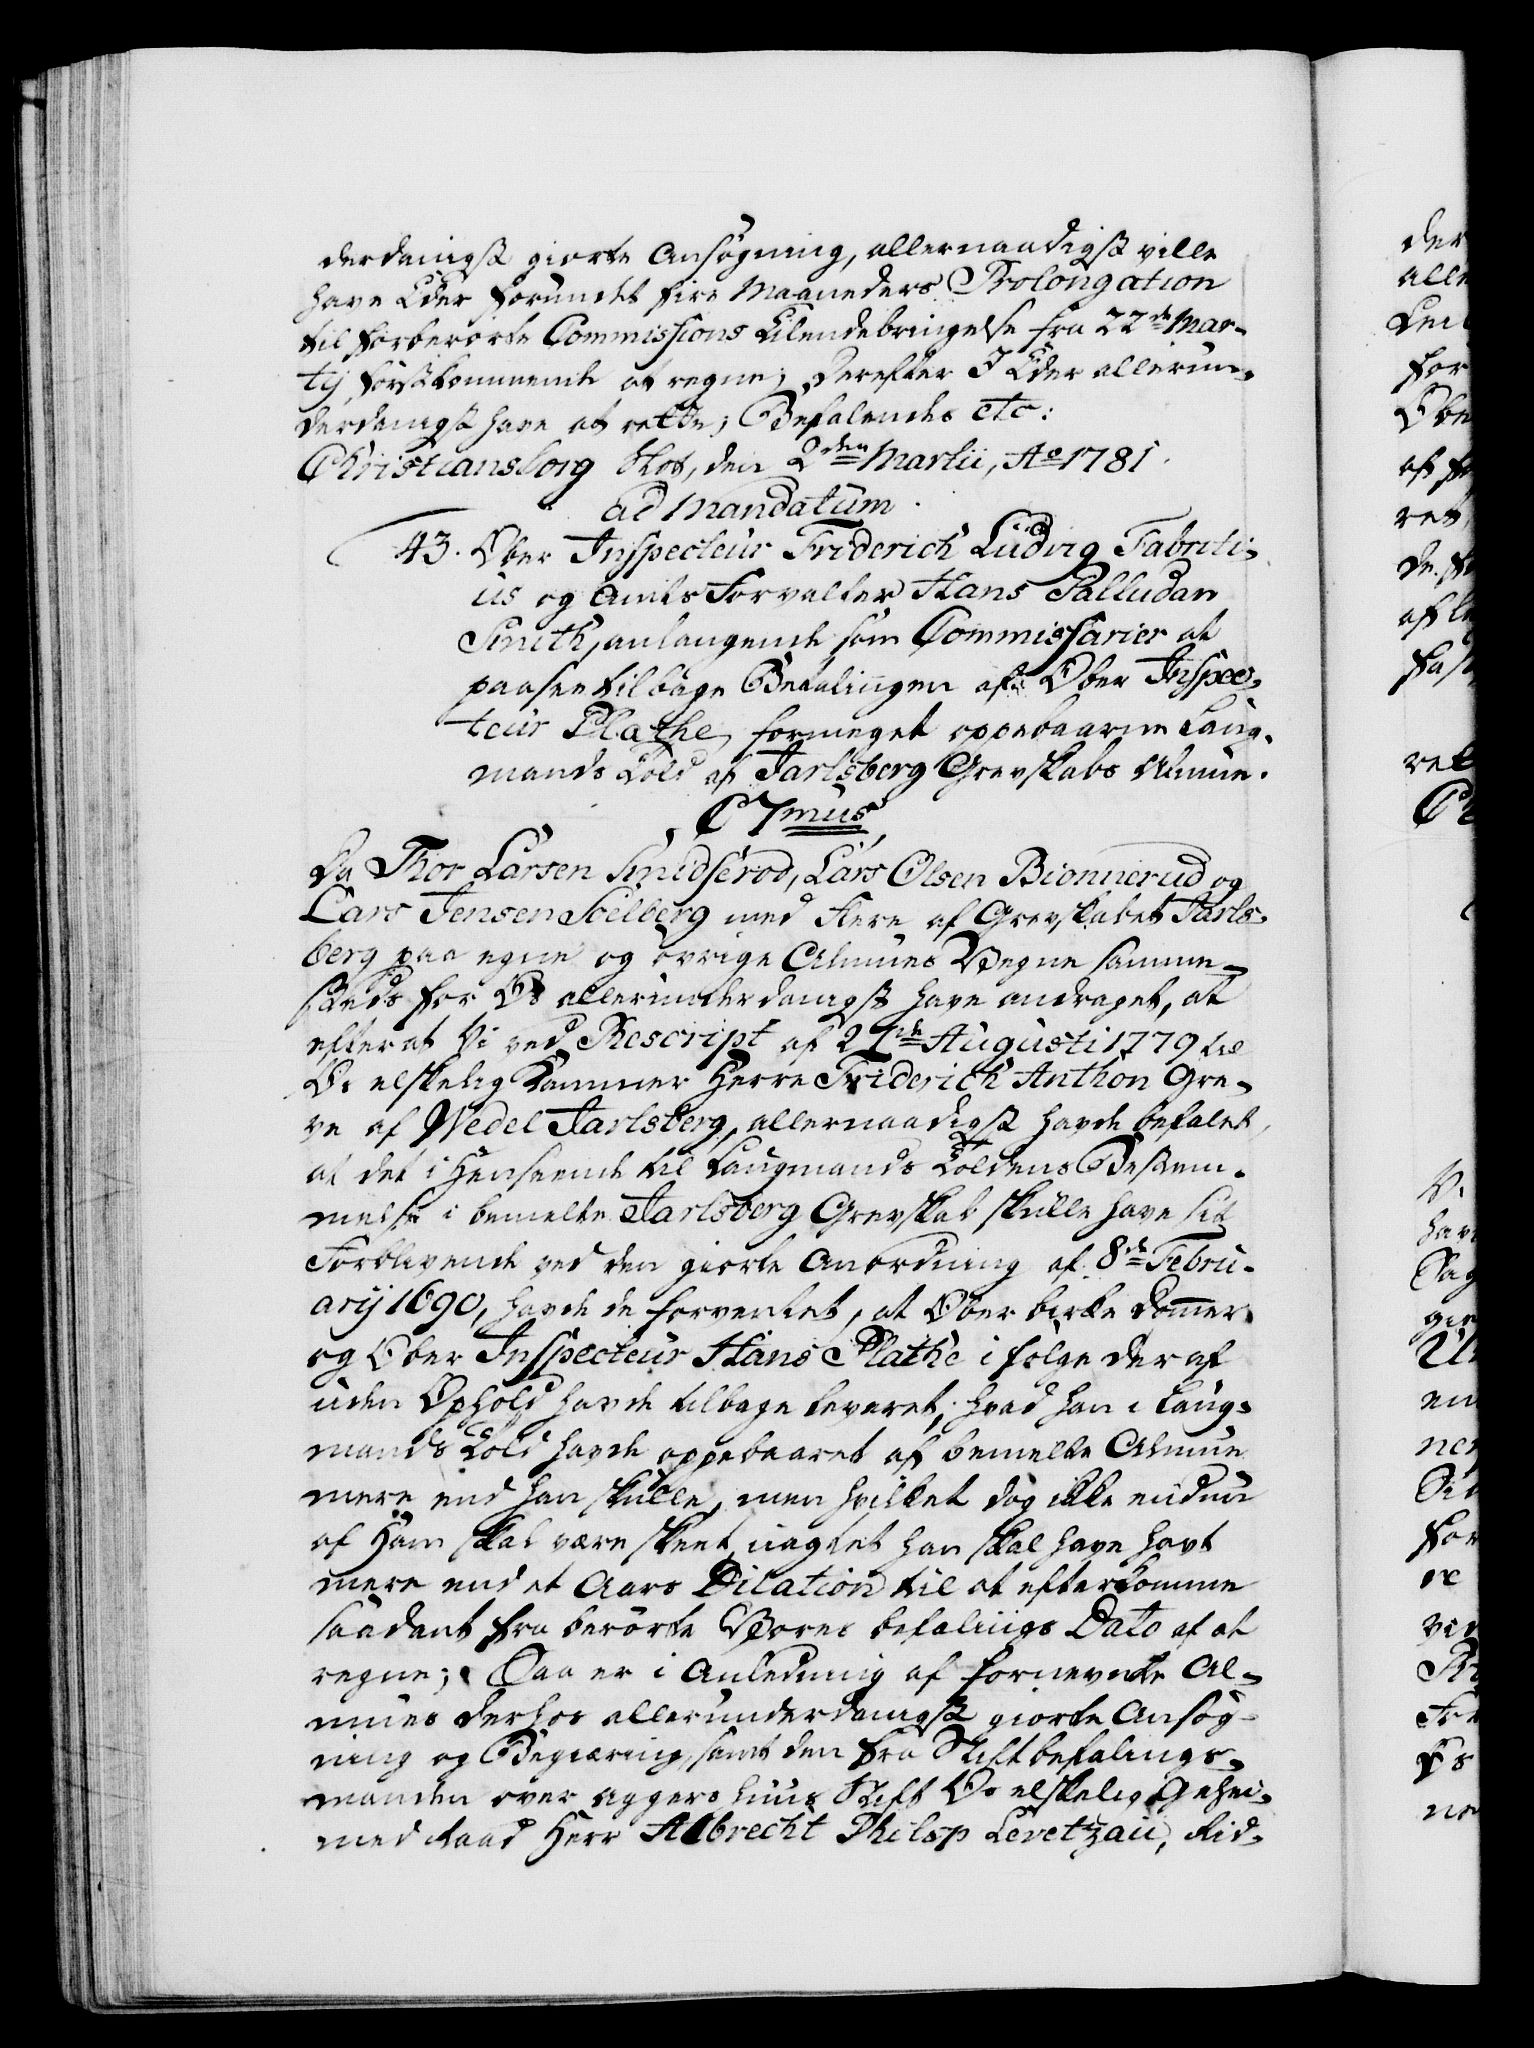 derdanigst giorte Ansøgning, allernaadigst ville
have Eder forundt fire Maaneders Prolongation
til forberørte Commissions Tilendebringelse fra 22de Mar-
tij førstkommende at regne; Derefter I Eder allerun-
derdanigst have at rette; Befalendes etc:
Christiansborg Slot, den 2den Martii, Ao 1781.
ad Mandatum.
43. Ober Inspecteur Friderich Ludvig Fabriti-
us og Amts Forvalter Hans Palludan
Smith, anlangende som Commissarier at
paasee tilbage Betalingen af Ober Inspec-
teur Plathe, formeget oppebaarne Laug-
mands Told af Jarlsberg Grevskabs Almue.
C7mus
Da Thor Larsen Smidsrød, Lars Olsen Bionnerud og
Lars Jensen Soelberg med flere af Grevskabet Jarls-
berg paa egne og øvrige Almues Vegne samme-
steds for Os allerunderdanigst have andraget, at
efterat Vi ved Rescript af 21de Augusti 1779 til
Os elskelig Kammer Herre Friderich Anthon Gre-
ve af Wedel Jarlsberg, allernaadigst havde befalet,
at det i Henseende til Laugmands Toldens Bestem-
melse i bemelte Jarlsberg Grevskab skulle have sit
Forblivende ved den giorte Anordning af 8de Febru-
arij 1690, havde de forventet, at Ober birke Dommer
og Ober Inspecteur Hans Plathe i følge deraf
uden Ophold havde tilbage leveret, hvad han i Laug-
mands Told havde oppebaaret af bemelte Almue
mere end han skulle, men hvilket dog ikke endnu
af Ham skal være skeet, uagtet han skal have havt
mere end et Aars Dilation til at efterkomme
saadant fra berørte Vores befalings Dato af at
regne; Saa er i Anledning af fornevnte Al-
mues derhos allerunderdanigst giorte Ansøg-
ning og Begiæring, samt den fra Stiftbefalings-
manden over Aggershuus Stift Os elskelig Gehei-
med Raad Herr Albrecht Philip Levetzau, Rid-